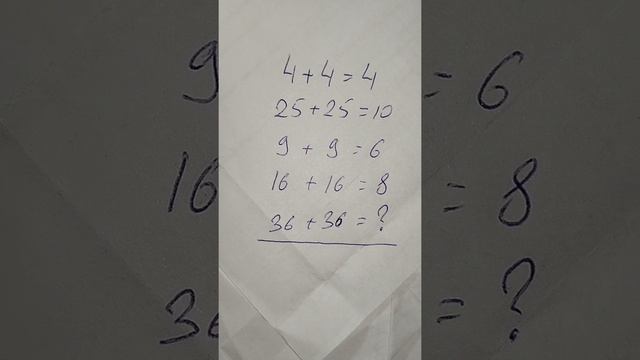 4 + 4 = 4
25 + 25 = 10
9 + 9 = 6
16 + 16 = 8
36 + 36 = ?